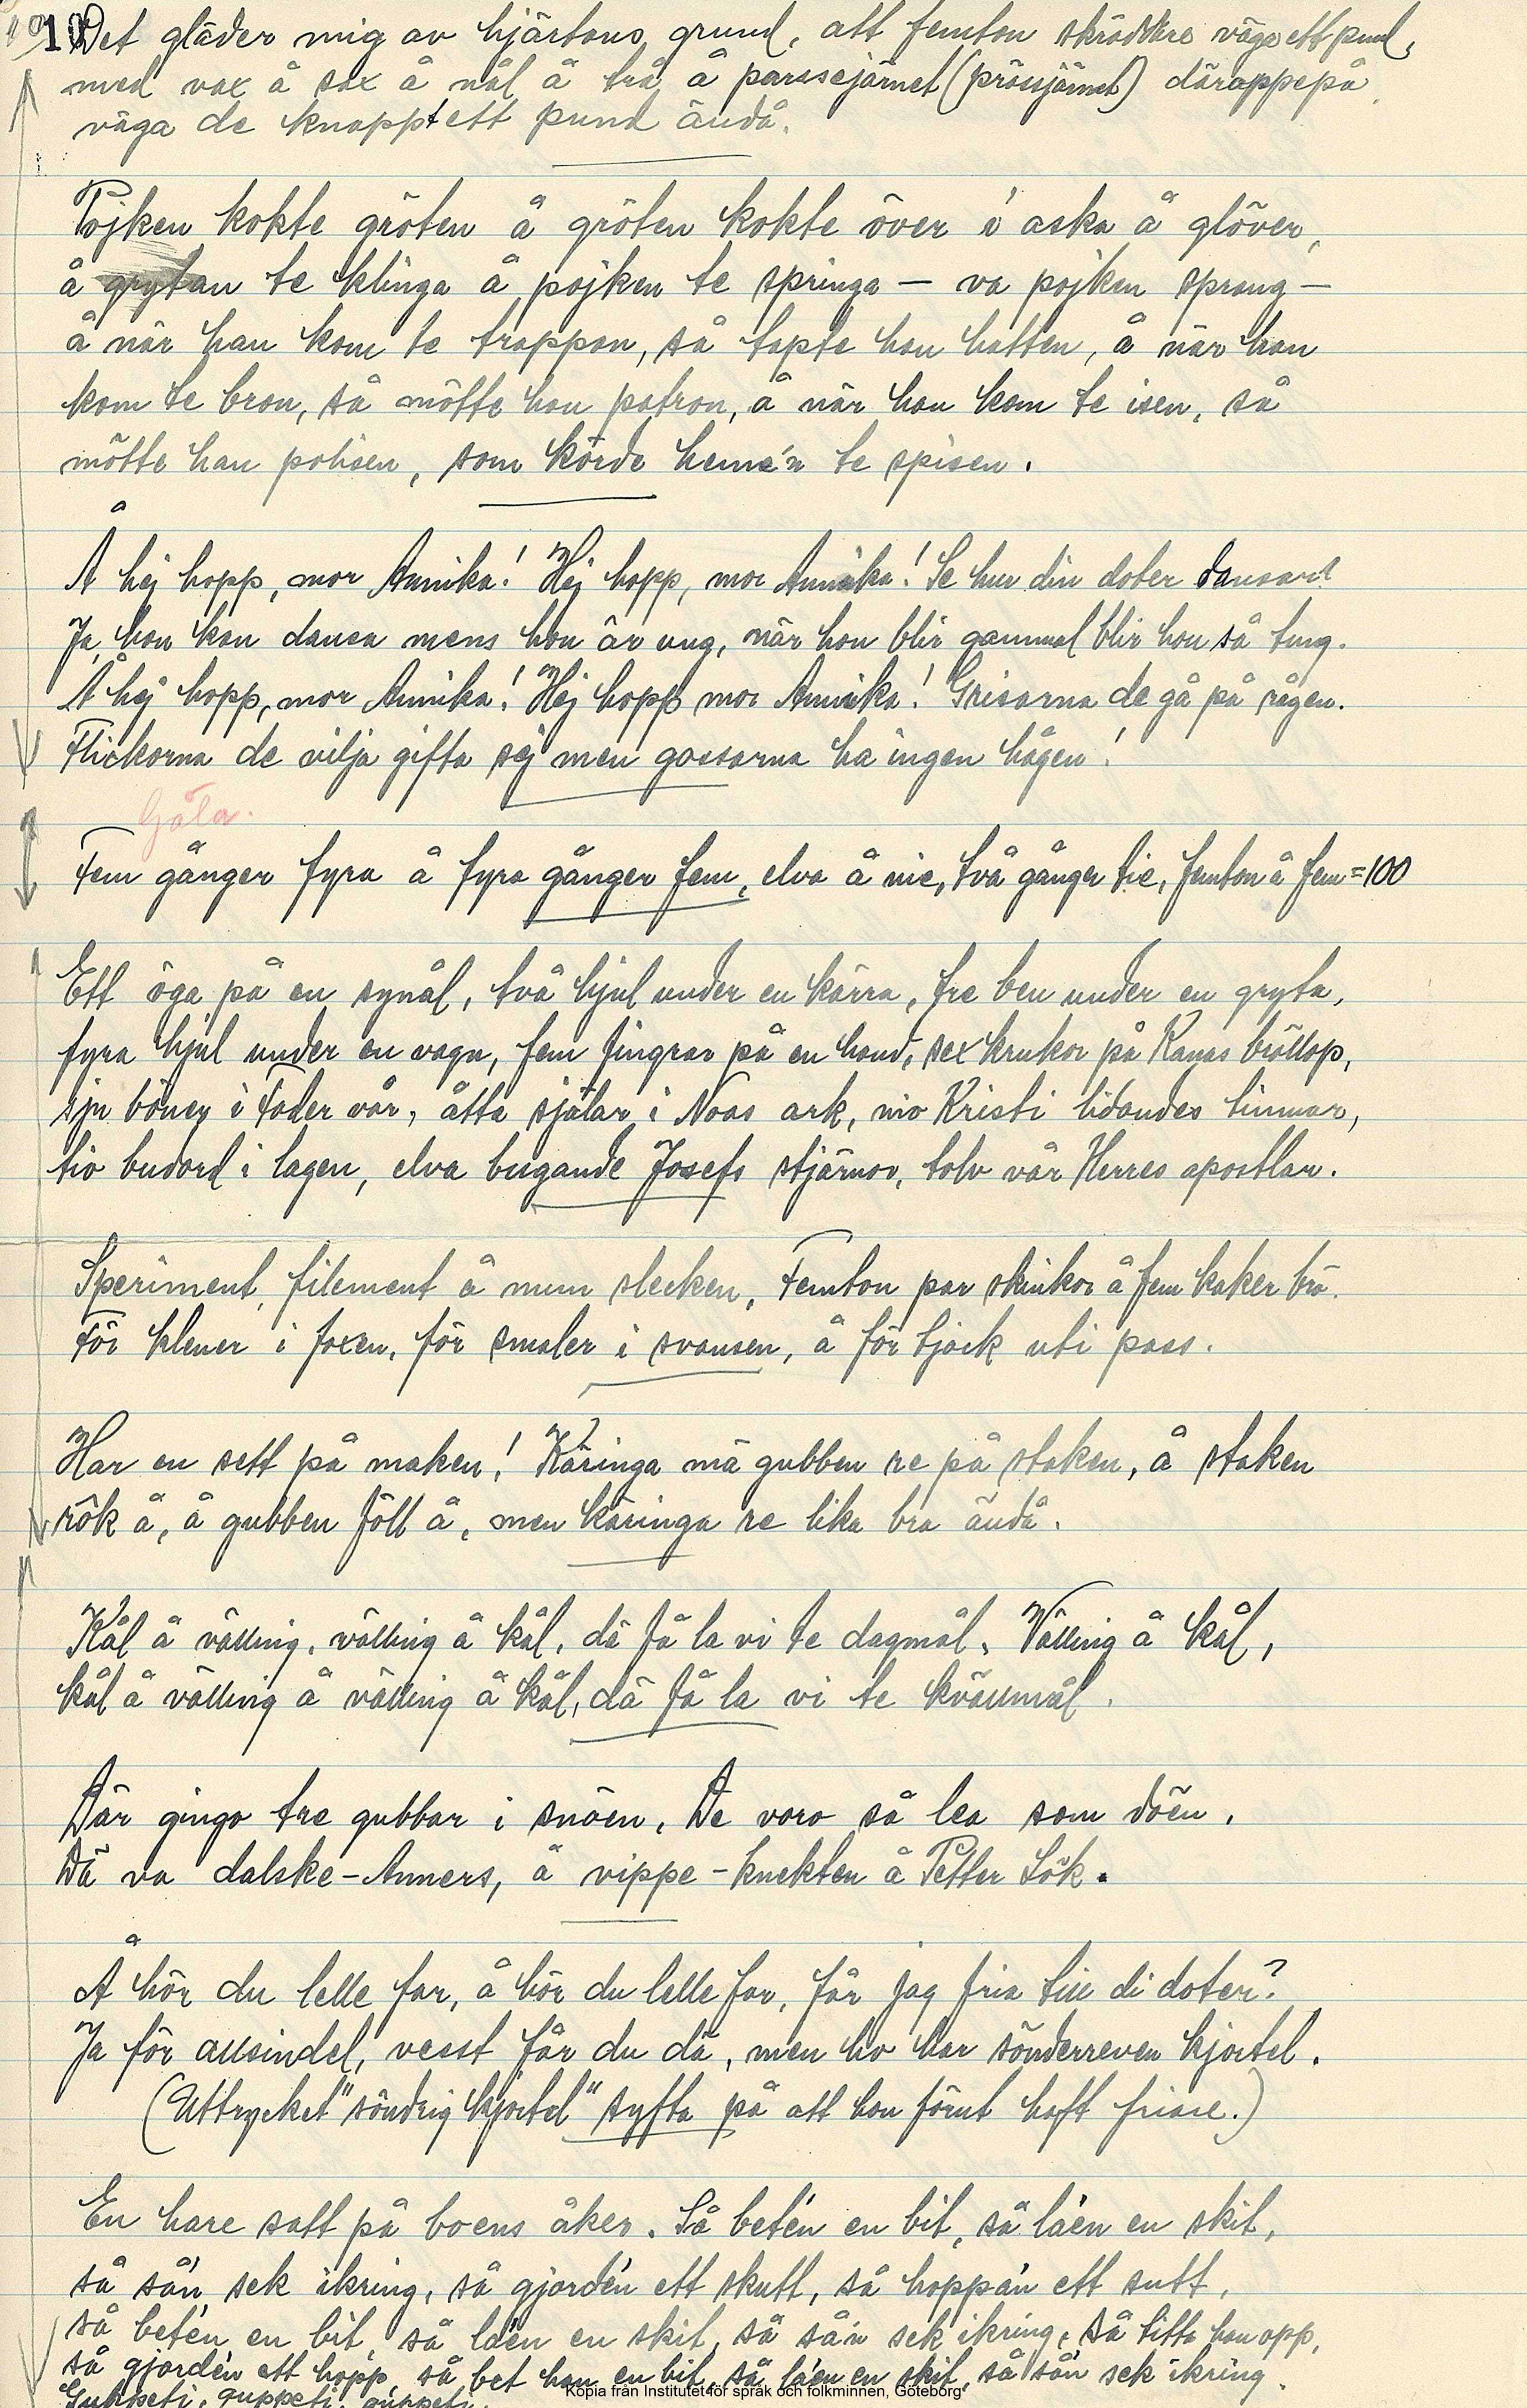 10 Det gläder mig av hjärtans grund, att femton skräddare väga ett pund,
med vax å sax å nål å trå å parssejärnet (prässjärnet) däroppepå
väga de knappt ett pund ändå.
Pojken kokte gröten å gröten kokte över i aska å glöver,
å grytan te klinga å pojken te springa – va pojken sprang –
å när han kom te trappan, så tapte han hatten, å när han
kom te bron, så mötte han patron, å när han kom te isen, så
mötte han polisen, som körde heme'n te spisen.
Å hej hopp, mor Annika! Hej hopp, mor Annika! Se hur din doter dansar!
Ja, hon kan dansa mens hon är ung, när hon blir gammal blir hon så tung.
Å hej hopp, mor Annika! Hej hopp mor Annika! Grisarna de gå på rågen.
Flickorna de vilja gifta sej men gossarna ha ingen hågen!
Gåta.
Fem gånger fyra å fyra gånger fem, elva å nie, två gånger tie, femton å fem = 100
Ett öga på en synål, två hjul under en kärra, tre ben under en gryta,
fyra hjul under en vagn, fem fingrar på en hand, sex krukor på Kanas bröllop,
sju böner i Fader vår, åtta själar i Noas ark, nio Kristi lidandes timmar,
tio budord i lagen, elva bugande Josefs stjärnor, tolv vår Herres apostlar.
Speriment, filement å mum slecken, Femton par skinkor å fem kaker brö.
För klener i foxen, för smaler i svansen, å för tjock uti pass.
Har en sett på maken! Käringa mä gubben re på staken, å staken
rök å, å gubben föll å, men käringa re lika bra ändå.
Kål å välling, välling å kål, dä få la vi te dagmål. Välling å kål,
kål å välling å välling å kål, dä få la vi te kvällmål.
Där gingo tre gubbar i snöen. De voro så lea som döen.
Dä va dalske-Anners, å vippe-knekten å Petter Lök.
Å hör du lelle far, å hör du lelle far, får jag fria till di doter?
Ja för allsindel, vesst får du dä, men ho har sönderreven kjortel.
(Uttrycket "söndrig kjortel" syfta på att hon förut haft friare.)
En hare satt på boens åker. Så beté'n en bit, så la'en en skit,
så så'n sek ikring, så gjorde'n ett skutt, så hoppa'n ett sutt,
så beté'n en bit, så la'en en skit, så så'n sek ikring, så titta han opp,
så gjorde'n ett hopp, så bet han en bit, så la'en en skit, så så'n sek ikring.
Guppeti, guppeti, guppeti.
Kopia från Institutet för språk och folkminnen, Göteborg